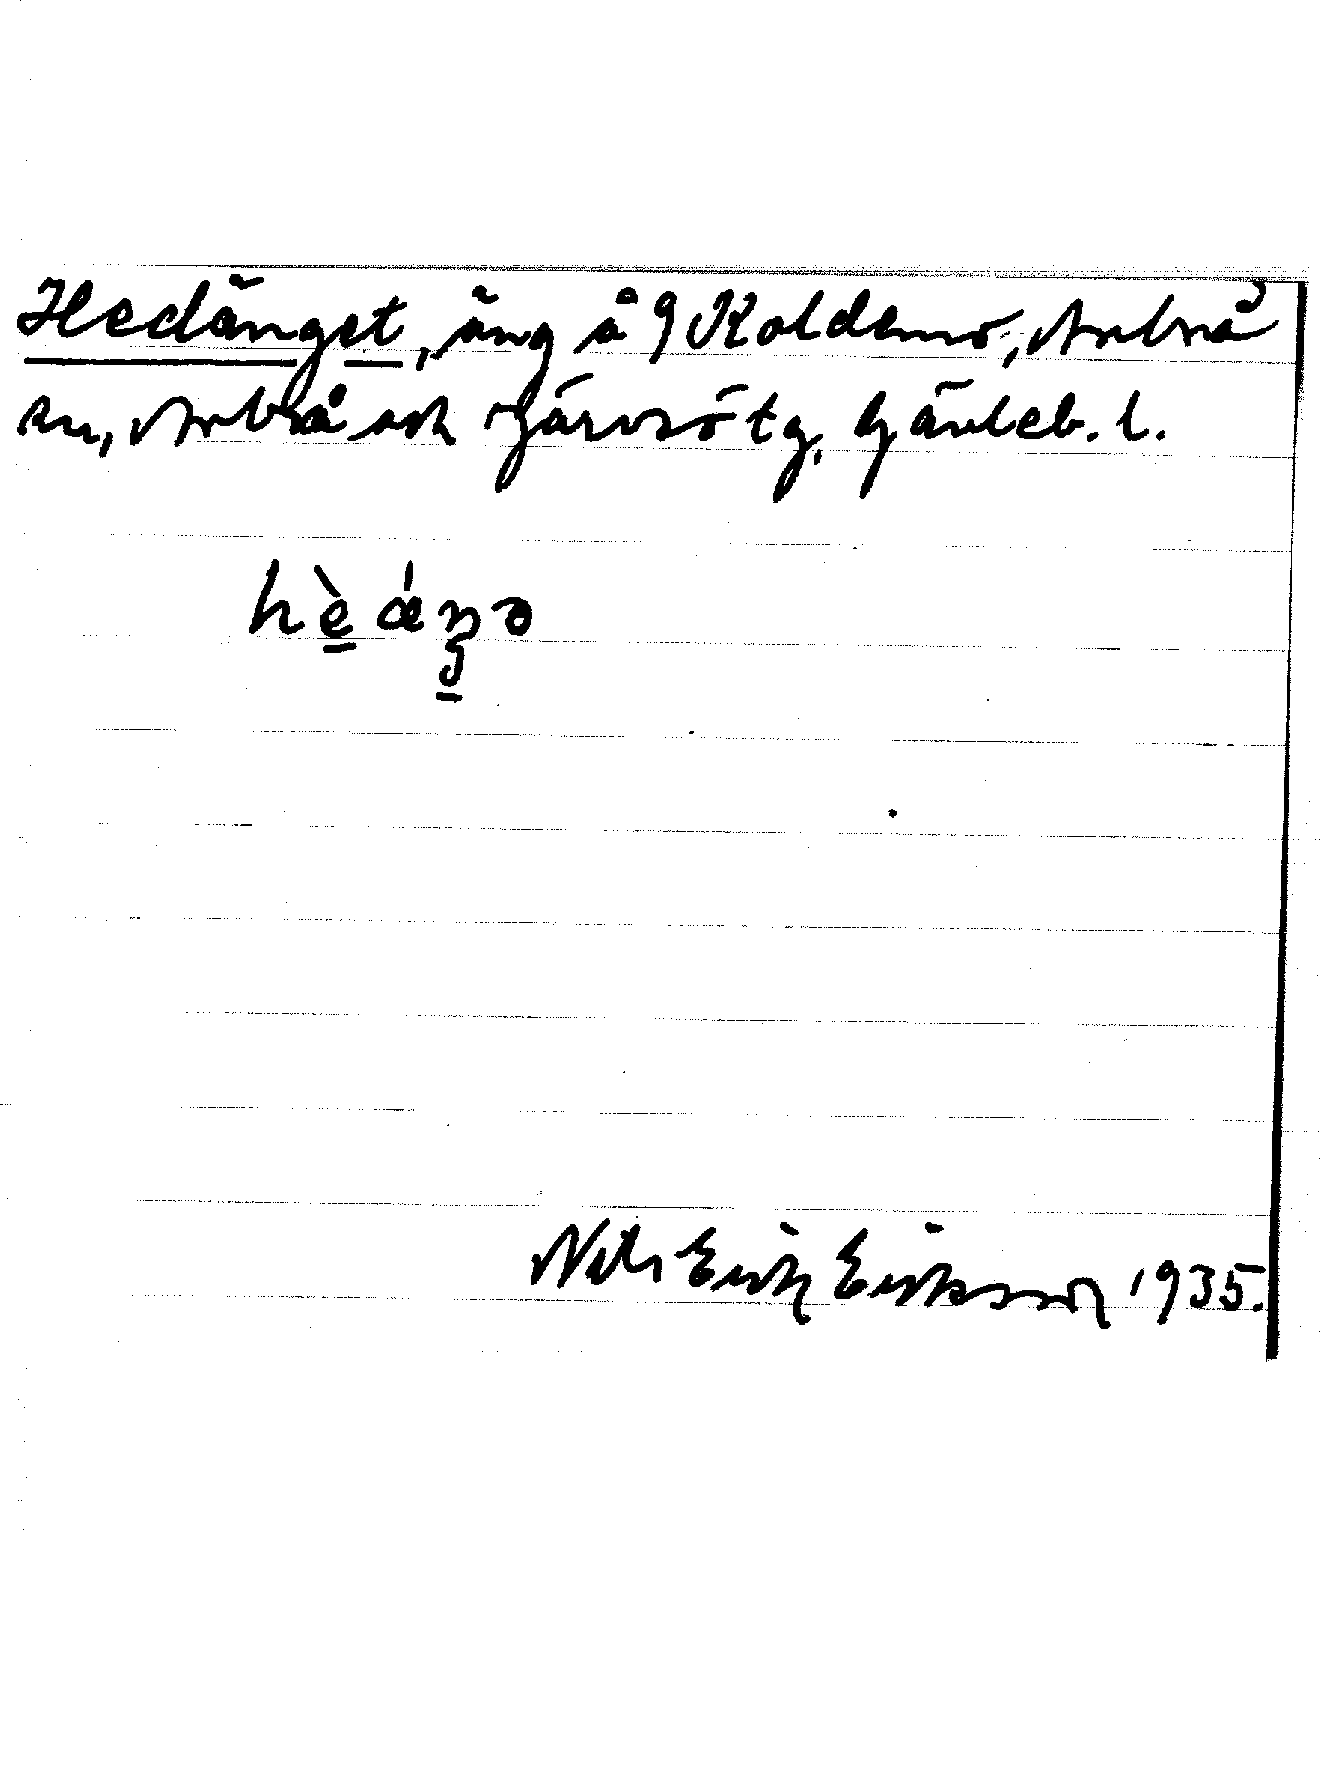 Hedänget, äng å 9 Koldemo, Arbrå
sn, Arbrå och Järvsö tg, Gävleb. l.
hè̠ǽŋ̠ə
Nils Erik Eriksson 1935.